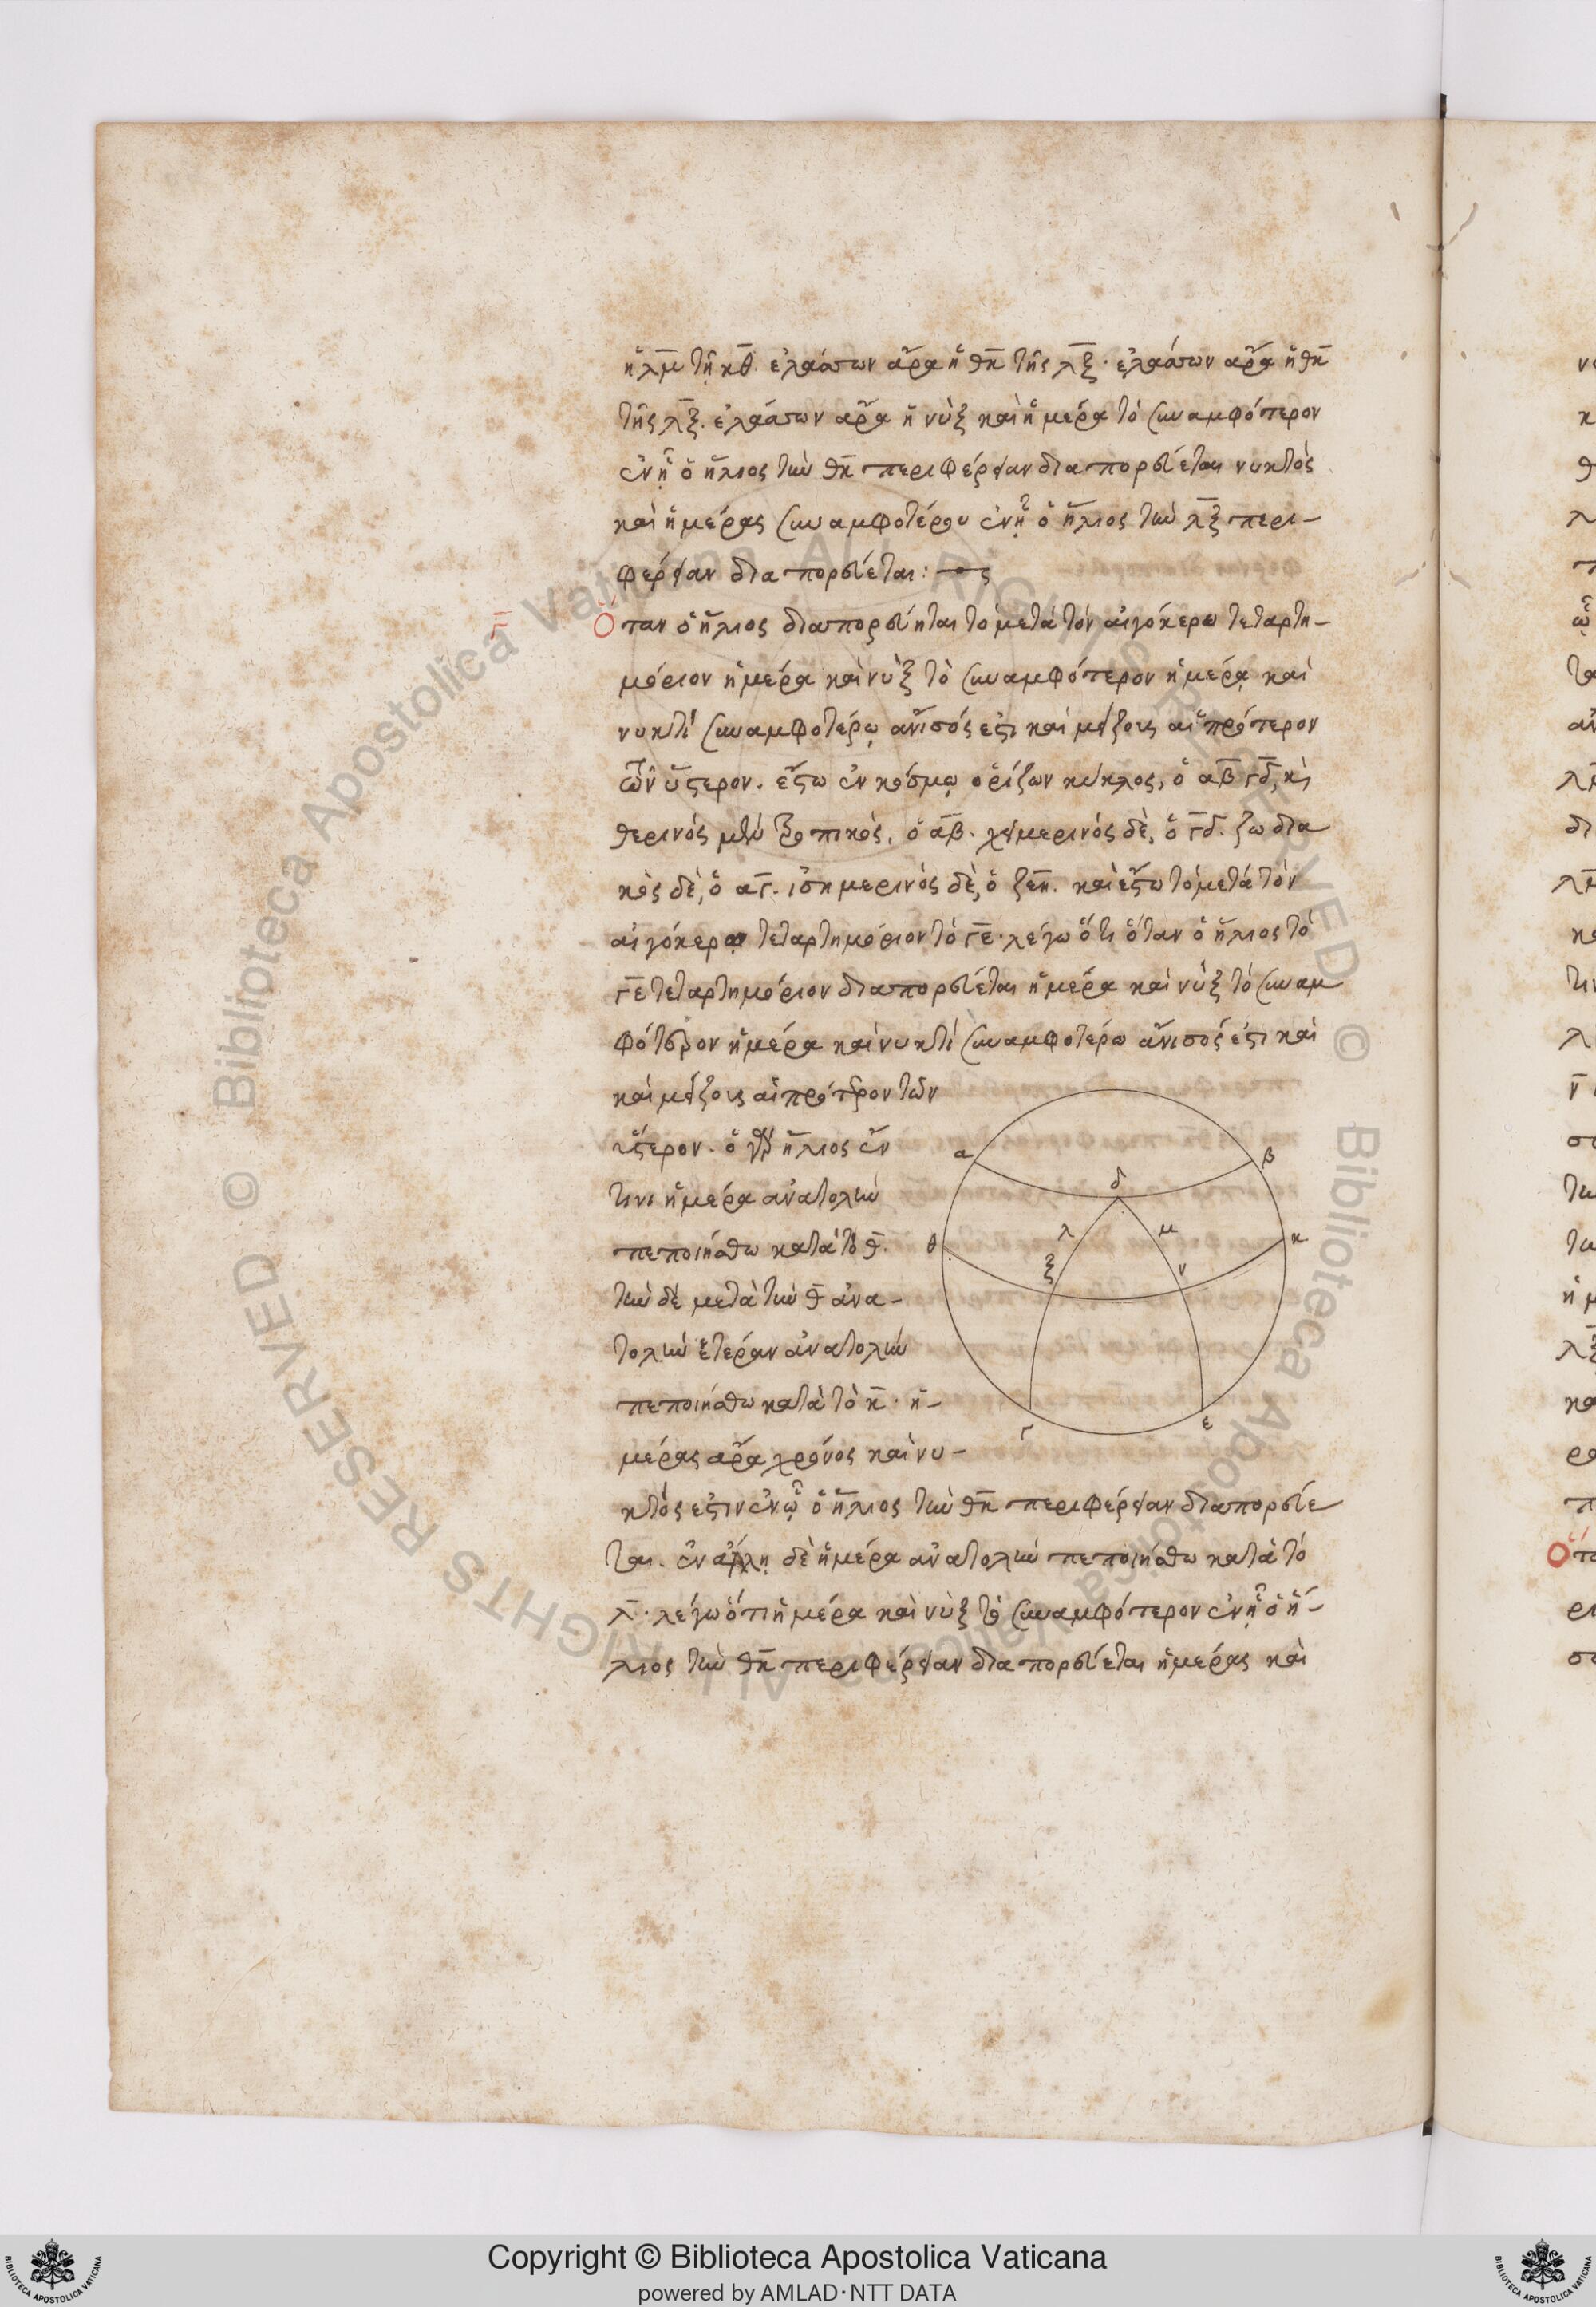 ἡ λ̅μ̅ τῇ κ̅θ̅. ἐλάσσων ἄρα ἡ θ̅κ̅ τῆς λ̅ξ̅· ἐλάσσων ἄρα ἡ θ̅κ̅
τῆς λ̅ξ̅. ἐλάσσων ἄρα ἡ νὺξ καὶ ἡμέρα τὸ συναμφότερον
ἐν ᾗ ὁ ἥλιος τὴν θ̅κ̅ περιφέρειαν διαπορεύεται νυκτὸς
καὶ ἡμέρας συναμφοτέρου ἐν ᾗ ὁ ἥλιος τὴν λ̅ξ̅ περι-
φέρειαν διαπορεύεται:
Ὅταν ὁ ἥλιος διαπορεύηται τὸ μετὰ τὸν αἰγόκερω τεταρτη-
μόριον ἡμέρα καὶ νὺξ τὸ συναμφότερον ἡμέρᾳ καὶ
νυκτὶ συναμφοτέρῳ ἄνισός ἐστι καὶ μείζους αἱ πρότερον
τῶν ὕστερον. ἔστω ἐν κόσμῳ ὁρίζων κύκλος, ὁ α̅β̅γ̅δ̅, καὶ
θερινὸς μὲν τροπικὸς, ὁ α̅β̅. χειμερινὸς δὲ, ὁ γ̅δ̅. ζωδια
κὸς δὲ, ὁ α̅γ̅. ἰσημερινὸς δὲ, ὁ ζ̅ε̅η̅. καὶ ἔστω τὸ μετὰ τὸν
αἰγόκερω τεταρτημόριον τὸ γ̅ε̅. λέγω ὅτι ὅταν ὁ ἥλιος τὸ
γ̅ε̅ τεταρτημόριον διαπορεύεται ἡμέρα καὶ νὺξ τὸ συναμ
φότερον ἡμέρα καὶ νυκτὶ συναμφοτέρω ἄνισός ἐστι καὶ
καὶ μείζους αἱ πρότερον τῶν
ὕστερον. ὁ γὰρ ἥλιος ἐν
τινι ἡμέρα ἀνατολὴν
πεποιήσθω κατὰ τὸ θ̅.
τὴν δὲ μετὰ τὴν θ̅ ἀνα-
τολὴν ἑτέραν ἀνατολὴν
πεποιήσθω κατὰ τὸ κ̅. ἡ-
μέρας ἄρα χρόνος καὶ νυ-
κτός ἐστιν ἐν ᾧ ὁ ἥλιος τὴν θ̅κ̅ περιφέρειαν διαπορεύε
ται. ἐν ἄλλῃ δὲ ἡμέρα ἀνατολὴν πεποιήσθω κατὰ τὸ
λ̅. λέγω ὅτι ἡμέρα καὶ νὺξ τὸ συναμφότερον ἐν ᾗ ὁ ἥ-
λιος τὴν θ̅κ̅ περιφέρειαν διαπορεύεται ἡμέρας καὶ
α β δ λ μ θ κ ξ ν γ ε
Copyright © Biblioteca Apostolica Vaticana
powered by AMLAD·NTT DATA